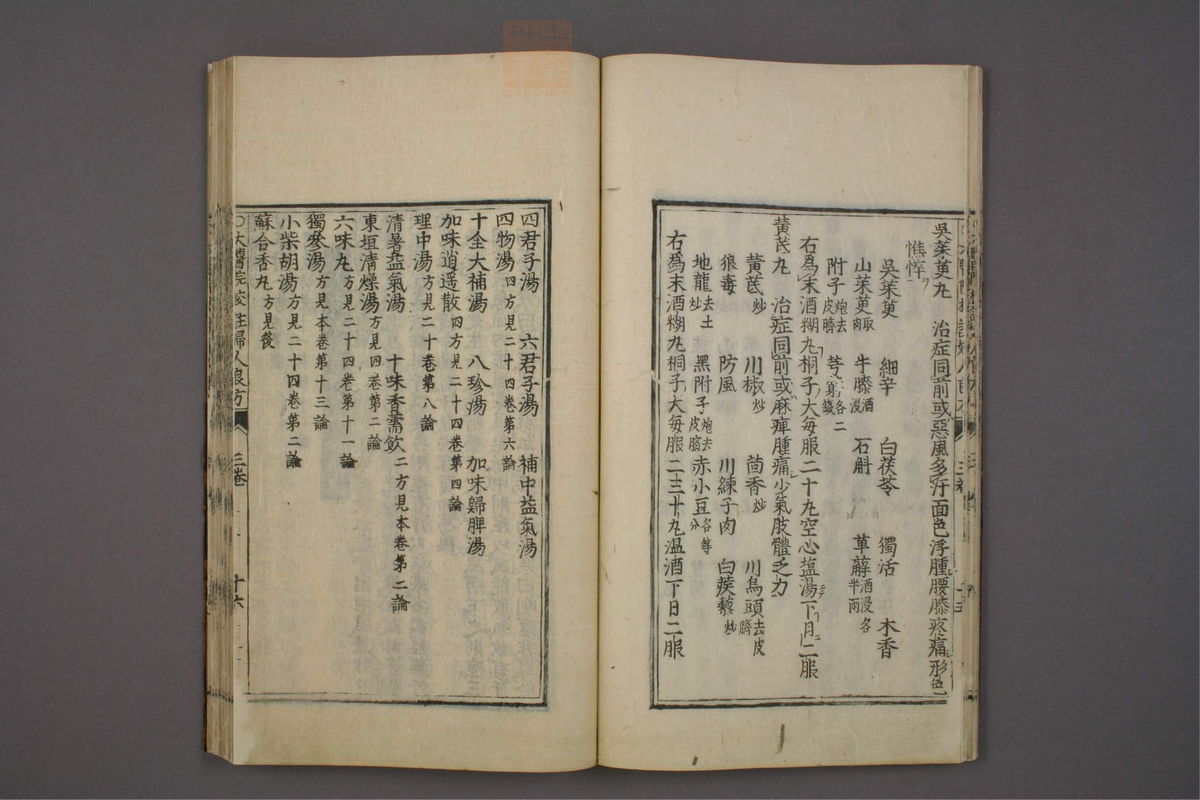 吳茱萸丸 治症同前或惡風多汗面色浮腫腰膝疼痛形色
憔悴
吳茱萸 細辛 白茯苓 獨活 木香
山茱萸 牛膝酒浸 石斛 萆薢酒浸各半兩
附子炮去皮臍 各二錢
右爲末酒糊丸桐子大每服二十丸空心塩湯下日二服
黃芪丸 治症同前或麻痺腫痛少氣肢體乏力
黃芪炒 川椒炒 茴香炒 川烏頭去皮臍
狼毒 防風 川練子肉 白蒺藜炒
地龍去土炒 黑附子炮去皮臍 赤小豆各等分
右爲末酒糊丸桐子大每服二三十丸温酒下日二服
四君子湯 六君子湯 補中益氣湯
四物湯四方見二十四卷第六論
十全大補湯 八珍湯 加味歸脾湯
加味逍遥散四方見二十四卷第四論
理中湯方見二十卷第八論
清暑益氣湯 十味香薷飲二方見本卷第二論
東垣清燥湯方見四卷第二論
六味丸方見二十四卷第十一論
獨參湯方見本卷第十三論
小柴胡湯方見二十四卷第二論
蘇合香丸方見後
○太醫院校註婦人良方 三卷 十六